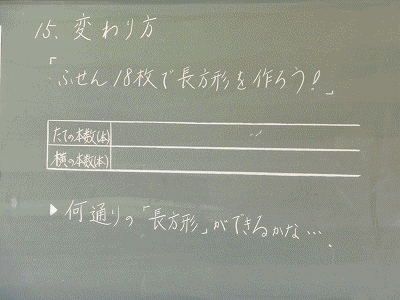 15. 変わり方
「ふせん18枚で長方形を作ろう！」
たての本数(本)
横の本数(本)
▶何通りの「長方形」ができるかな…